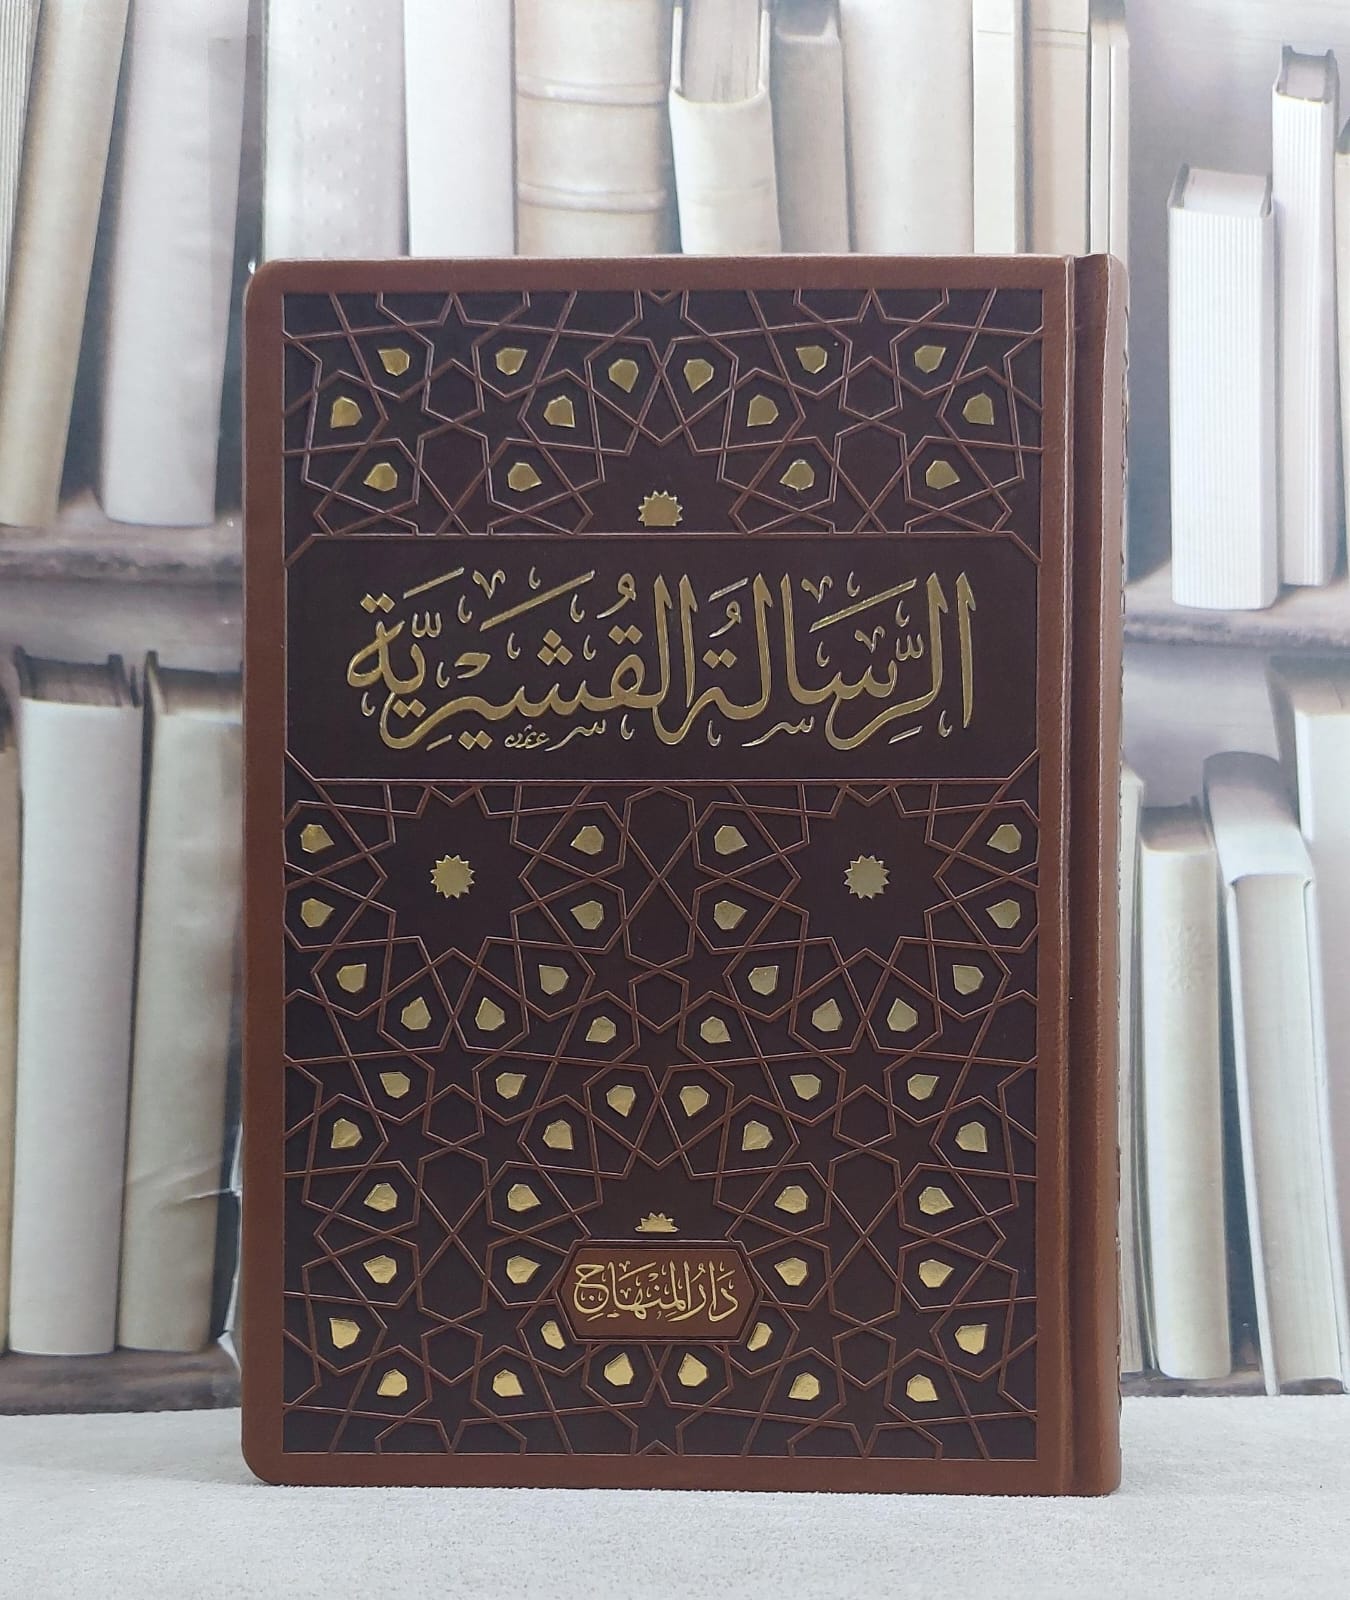 الرِّسَالَةُ القُشَيْرِيَّة
دَارُ المِنْهَاجِ